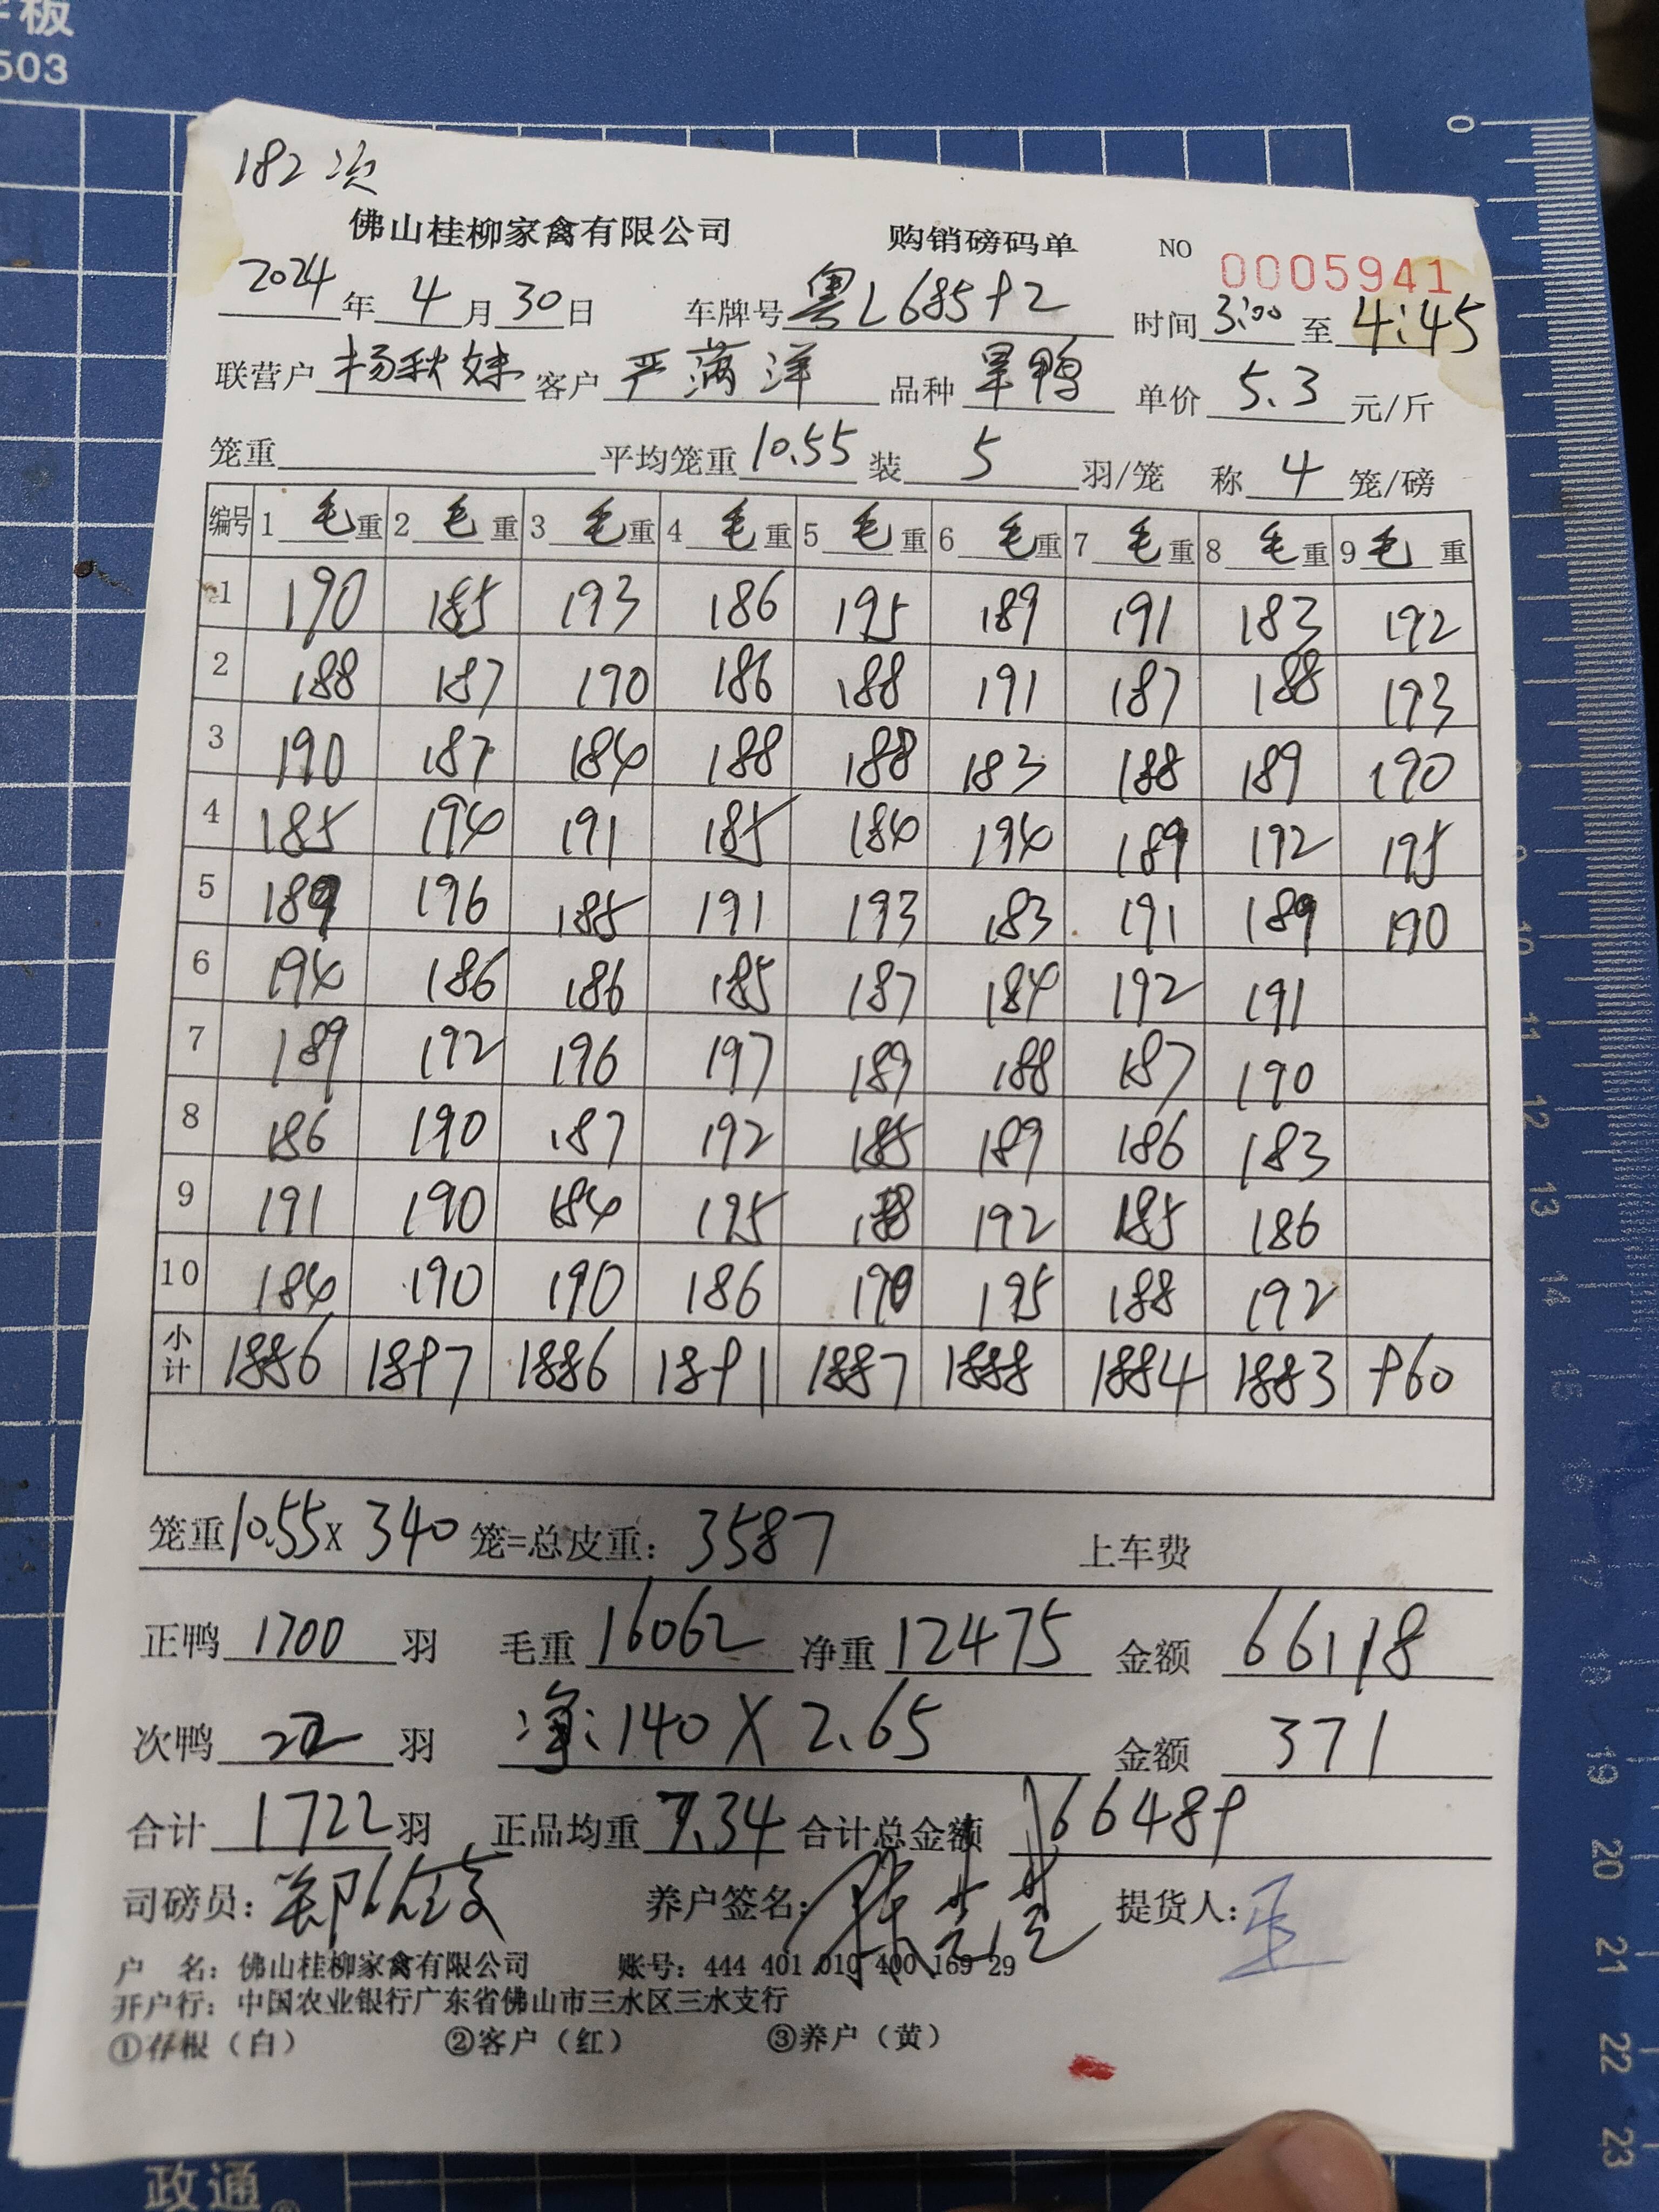 板
503
0
182次
佛山桂柳家禽有限公司 购销磅码单 NO 0005941
2024年4月30日 车牌号 粤L68592 时间 3:00 至 4:45
联营户 杨秋妹 客户 严满洋 品种 旱鸭 单价 5.3 元/斤
笼重 平均笼重 10.55 装 5 羽/笼 称 4 笼/磅
编号 1 毛重 2 毛重 3 毛重 4 毛重 5 毛重 6 毛重 7 毛重 8 毛重 9 毛重
1 190 185 193 186 195 189 191 183 192
2 188 187 190 186 188 191 187 188 193
3 190 187 184 188 188 183 188 189 190
4 185 194 191 185 184 194 189 192 195
5 189 196 185 191 193 183 191 189 190
6 194 186 186 185 187 184 192 191
7 189 192 196 197 189 188 187 190
8 186 190 187 192 185 189 186 183
9 191 190 184 195 188 192 185 186
10 184 190 190 186 190 195 188 192
小计 1886 1897 1886 1891 1887 1888 1884 1883 960
笼重 10.55 x 340 笼=总皮重: 3587 上车费
正鸭 1700 羽 毛重 16062 净重 12475 金额 66118
次鸭 22 羽 净:140 X 2.65 金额 371
合计 1722 羽 正品均重 7.34 合计总金额 66489
司磅员: 养户签名: 提货人:
户 名: 佛山桂柳家禽有限公司 账号: 444 401 010 400 169 29
开户行: 中国农业银行广东省佛山市三水区三水支行
①存根（白） ②客户（红） ③养户（黄）
10
11
12
13
14
15
16
17
18
19
20
21
22
23
政通